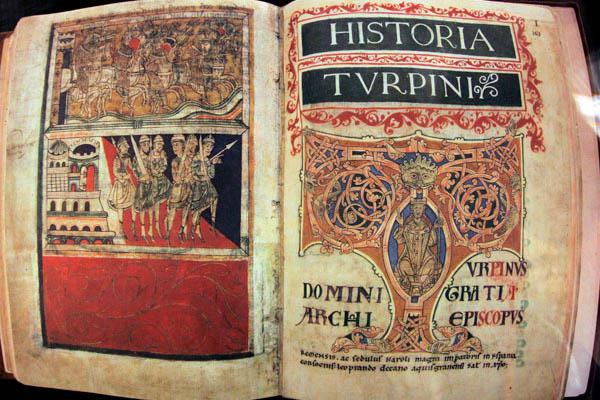 HISTORIA
TVRPINI
I
163
VRPINVS
DOMINI GRATIA
ARCHI EPISCOPVS
REMENSIS. ac sedulus Karoli magni impatoris in yspania
consocius. leoprando decano aquisgranensi salt in xpo;